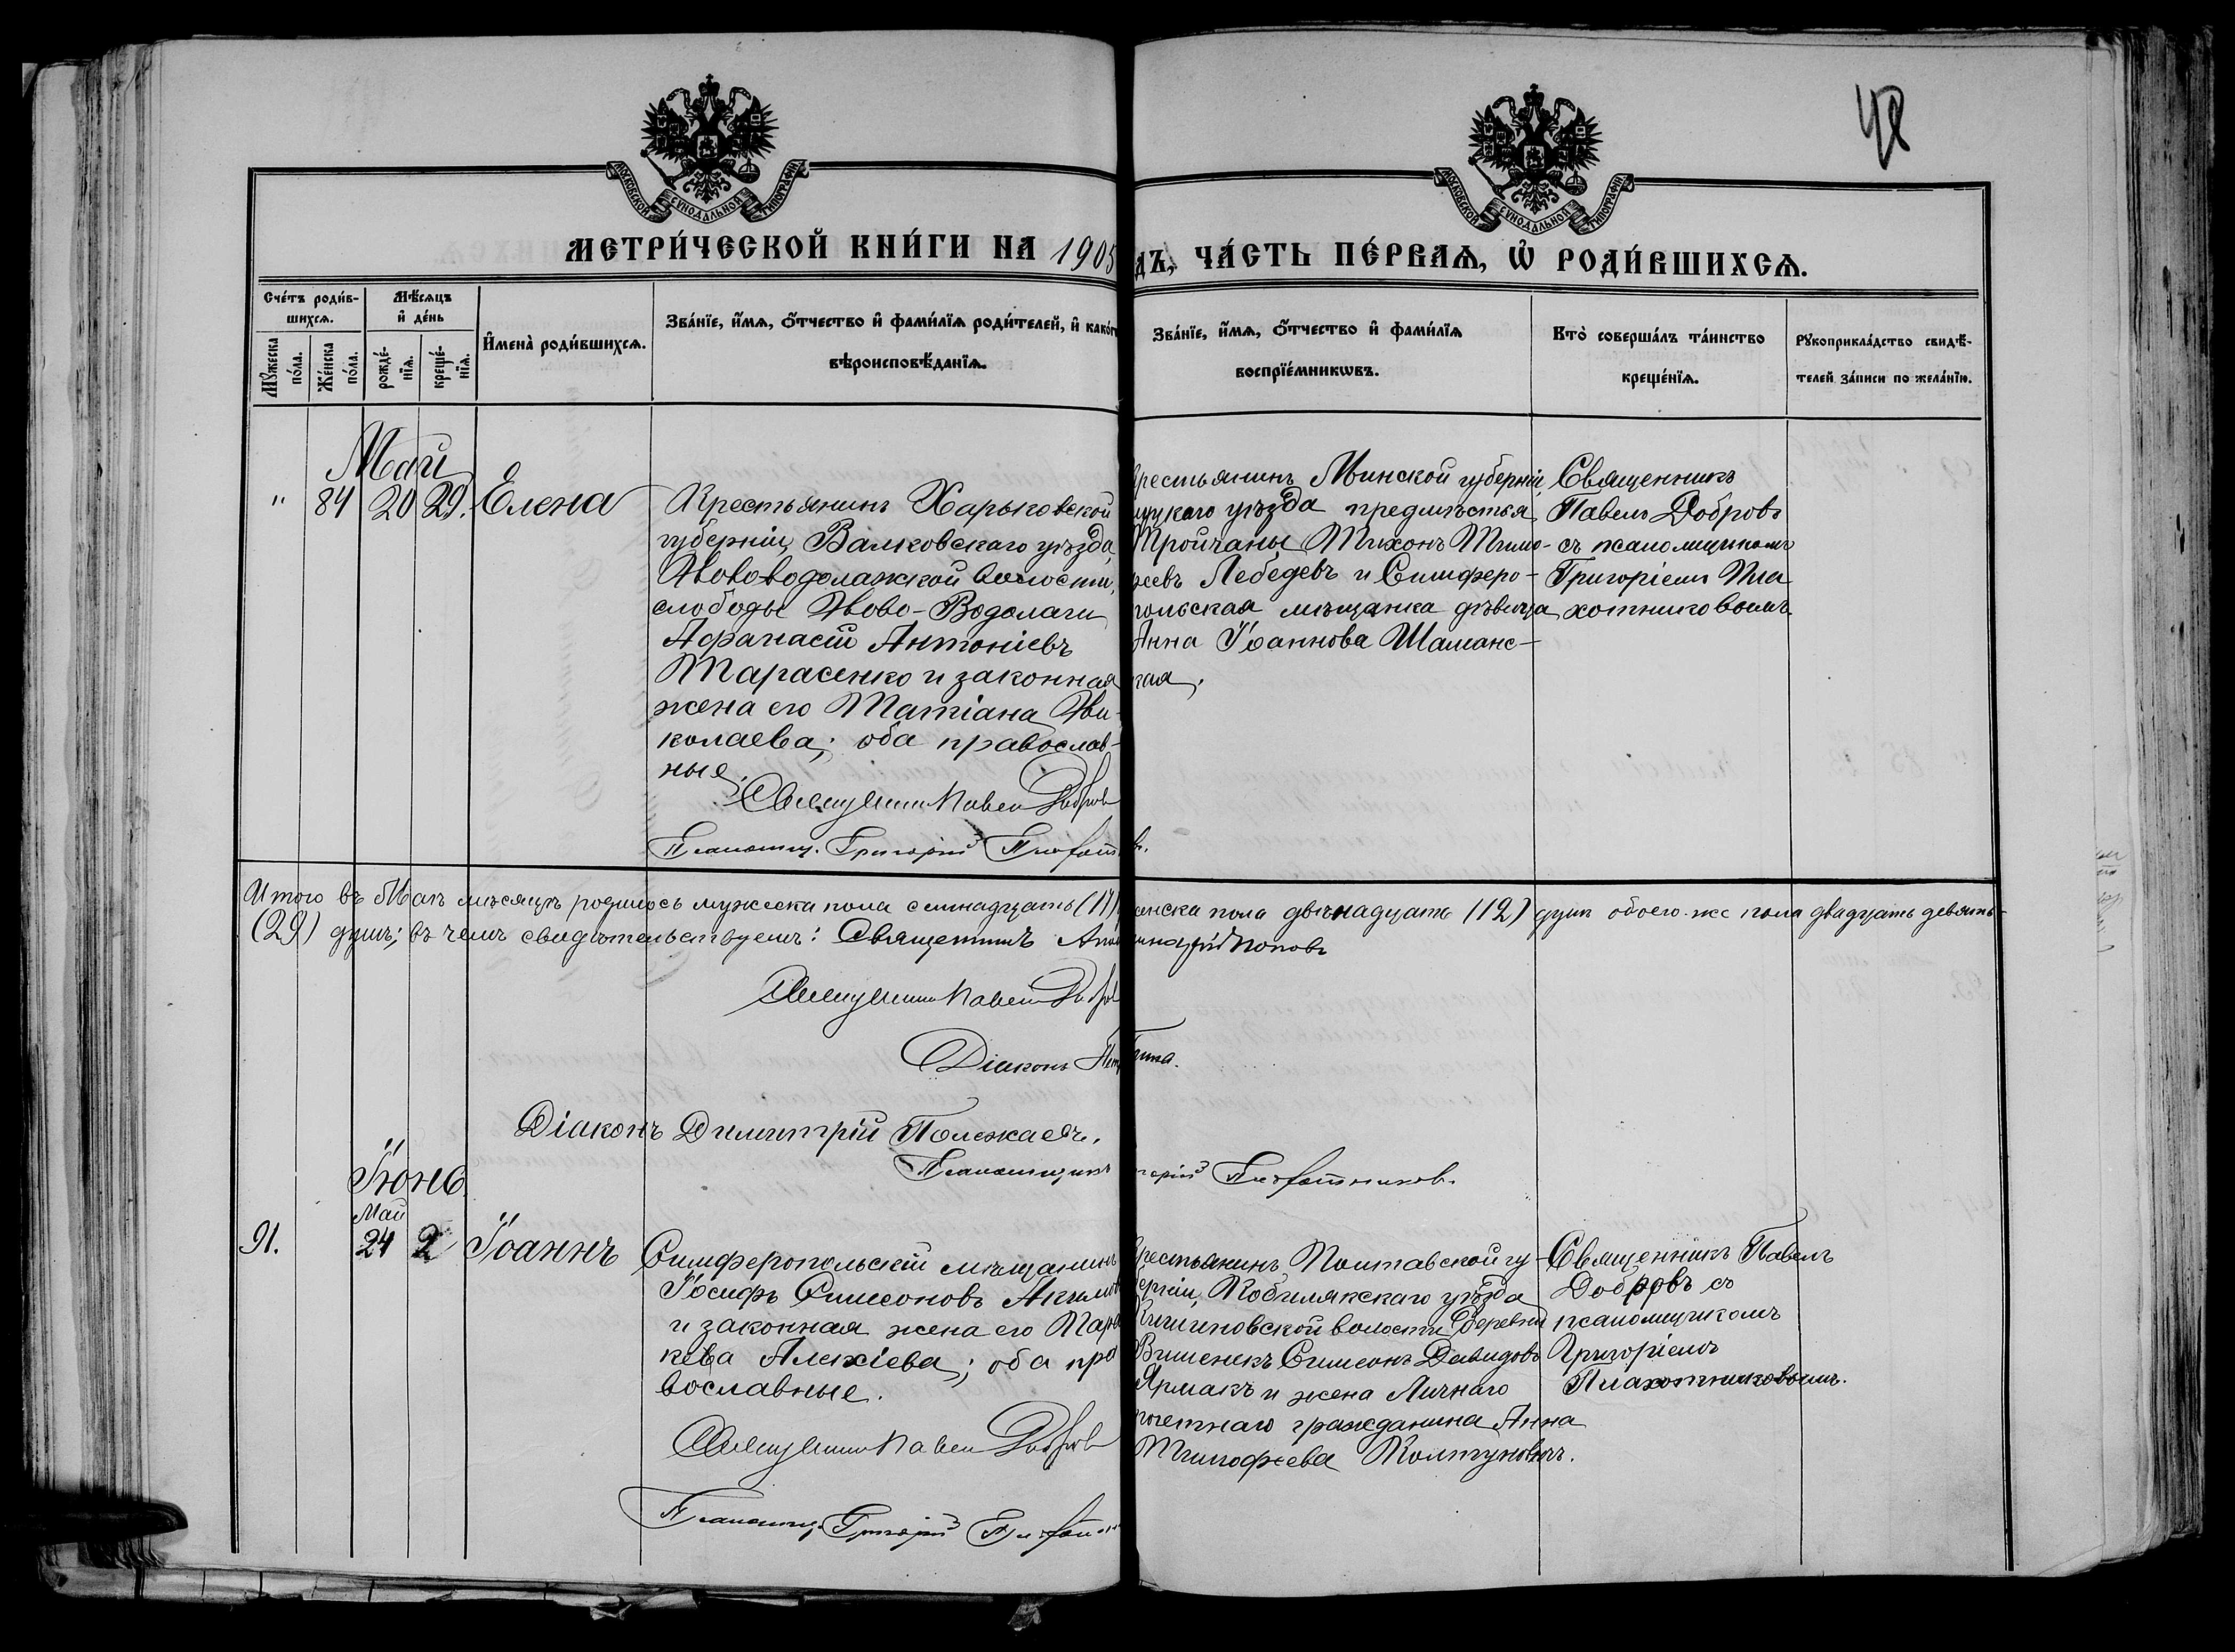 48
МОСКОВСКОЙ СУНОДАЛЬНОЙ ТИПОГРАФІИ
МОСКОВСКОЙ СУНОДАЛЬНОЙ ТИПОГРАФІИ
МЕТРИ́ЧЕСКОЙ КНИ́ГИ НА 1905
дъ, ЧА́СТЬ ПЕ́РВАѦ, Ѿ РОДИ́ВШИХСѦ.
Сче́тъ роди́в-
шихсѧ.
Мꙋ́жеска
по́ла.
Же́нска
по́ла.
Мѣ́сѧцъ
и҆ де́нь
рожде́-
нїѧ.
креще́-
нїѧ.
И҆мена̀ роди́вшихсѧ.
Зва́нїе, и҆́мѧ, ѻ҆́тчество и҆ фами́лїѧ роди́телей, и҆ како́г
вѣроисповѣ́данїѧ.
Зва́нїе, и҆́мѧ, ѻ҆́тчество и҆ фами́лїѧ
воспрїе́мникѡвъ.
Кто̀ соверша́лъ та́инство
креще́нїѧ.
Рꙋкоприкла́дство свидѣ́-
телей за́писи по жела́нїю.
Май
" 84 20 29. Елена
Крестьянинъ Харьковской
губерніи, Валковскаго уѣзда,
Нововодолажской волости,
слободы Ново-Водолаги
Афанасій Антоніевъ
Тарасенко и законная
жена его Татіана Ни-
колаева; оба православ-
ные.
Священникъ Павелъ Добров
Псаломщ. Григорій Плахотн
рестьянинъ Минской губерніи,
уцкаго уѣзда предмѣстья
Тройчаны Тихонъ Тимо-
ѳеевъ Лебедевъ и Симферо-
польская мѣщанка дѣвица
Анна Іоаннова Шаманс-
кая.
в.
Священникъ
Павелъ Добровъ
съ псаломщикомъ
Григоріемъ Пла
хотниковымъ
Итого въ Маѣ мѣсяцѣ родилось мужеска пола семнадцать (17)
енска пола двѣнадцать (12) душъ обоего-же пола двадцать девять-
(29) душъ; въ чемъ свидѣтельствуемъ: Священникъ Апол
инарій Поповъ
Священникъ Павелъ Добров
Діаконъ Пет
Діаконъ Димитрій Полежаевъ.
Псаломщикъ
горій Плахотников.
Іюнь
Май
91. 24 2 Іоаннъ
Симферопольскій мѣщанинъ
Іосифъ Симеоновъ Акимов
и законная жена его Парас
кева Алексіева; оба пра
вославные.
Священникъ Павелъ Добров
Псаломщ. Григорій Плахотн
рестьянинъ Полтавской гу-
берніи, Кобелякскаго уѣзда
Кишиновской волости, деревни
Вишенекъ Симеонъ Давидовъ
Ярмакъ и жена Личнаго
почетнаго гражданина Анна
Тимофѣева Колтуновичъ.
Священникъ Павелъ
Добровъ съ
псаломщикомъ
Григоріемъ
Плахотниковымъ.